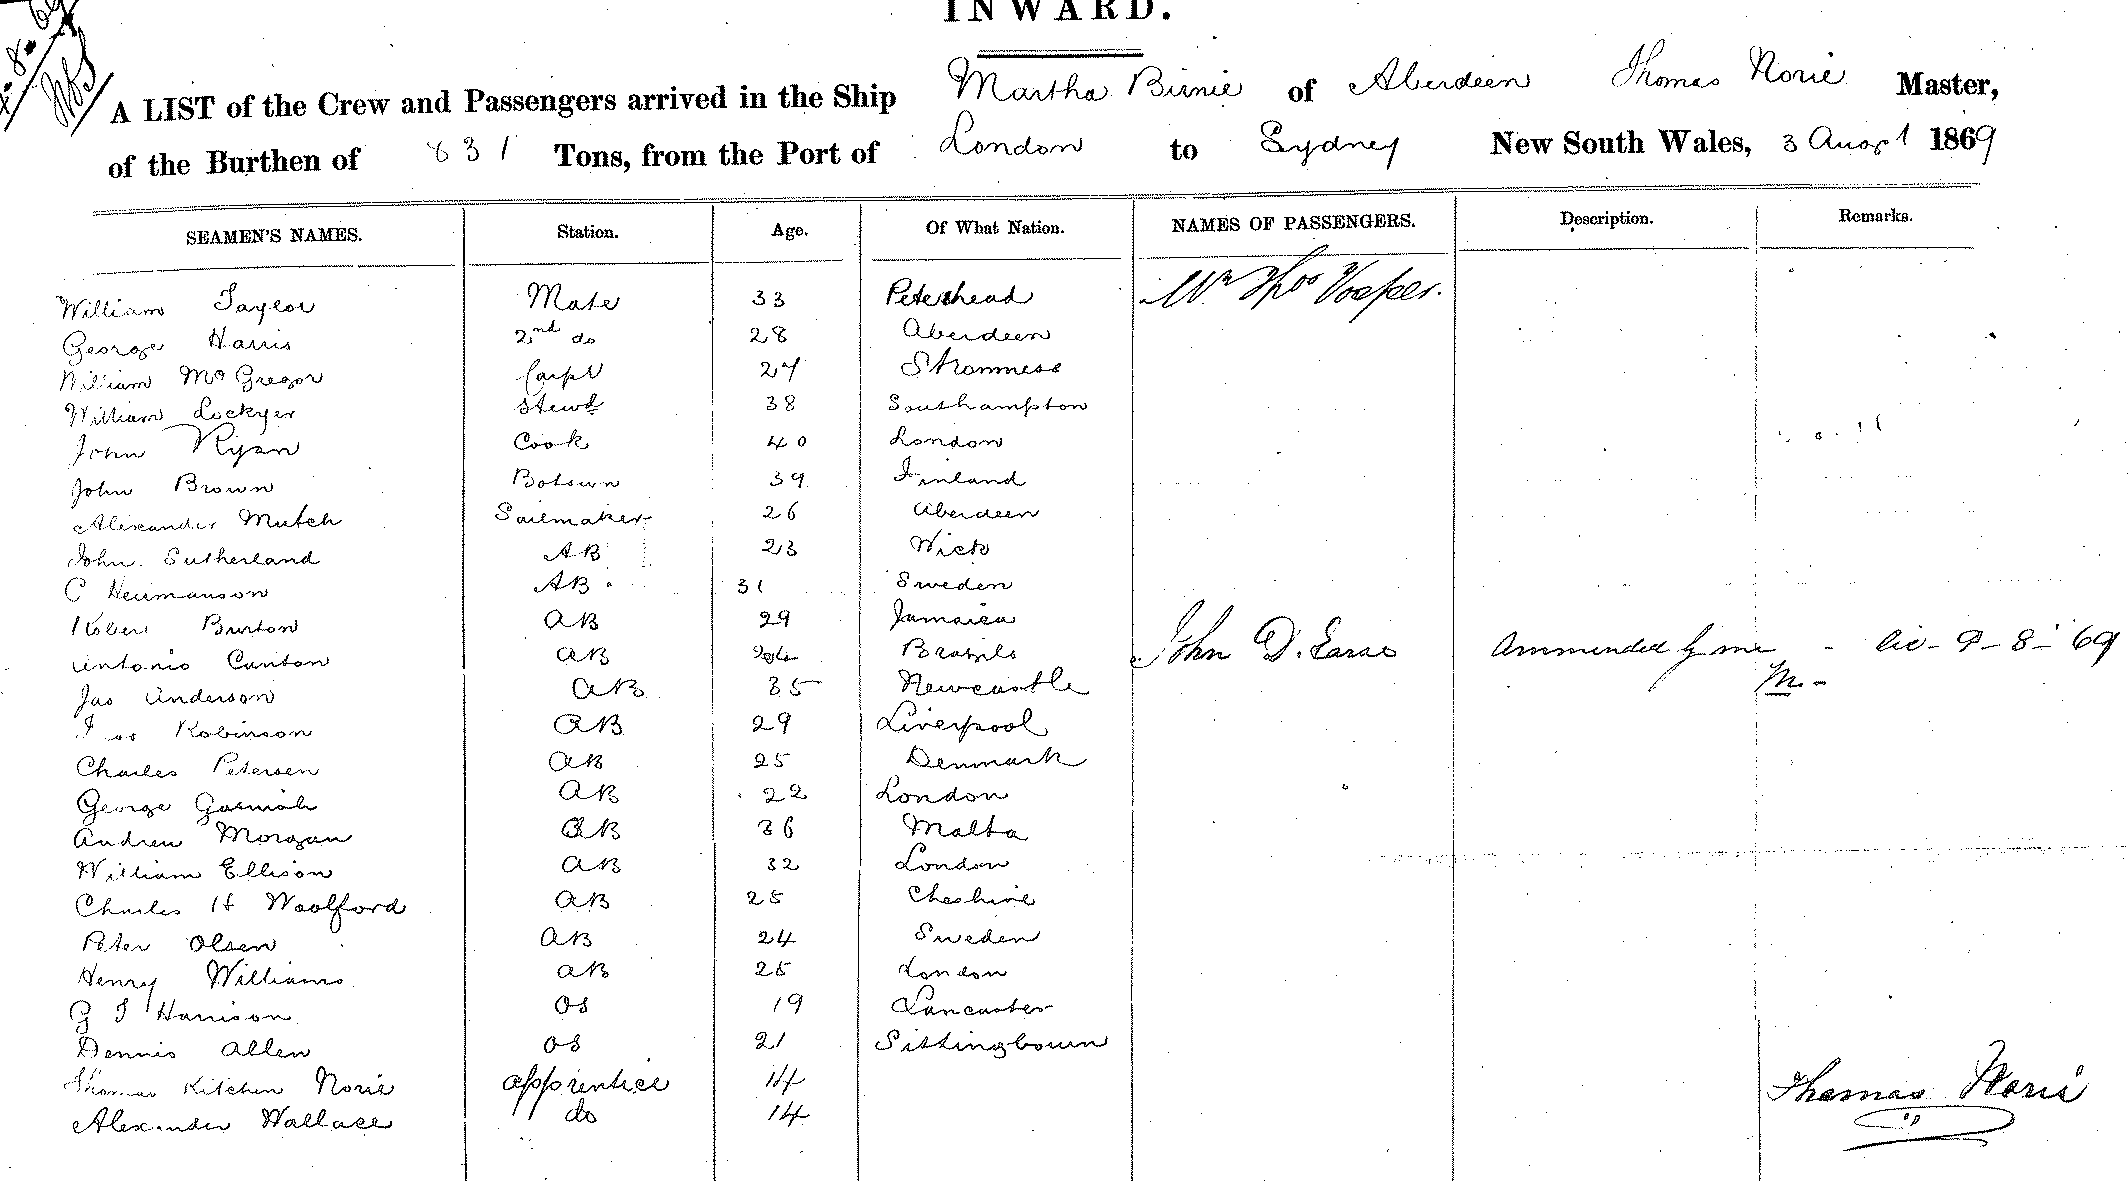 INWARD.
A LIST of the Crew and Passengers arrived in the Ship Martha Birnie of Aberdeen Thomas Norie Master,
of the Burthen of 831 Tons, from the Port of London to Sydney New South Wales, 3 Augt 1869
SEAMEN'S NAMES. Station. Age. Of What Nation. NAMES OF PASSENGERS. Description. Remarks.
William Taylor Mate 33 Peterhead Mr Thos
George Harris 2nd do 28 Aberdeen
William McGregor Carpt 27 Stromness
William Lockyer Stewd 38 Southampton
John Ryan Cook 40 London
John Brown Botswn 39 Finland
Alexander Mutch Sailmaker 26 Aberdeen
John Sutherland AB 23 Wick
C AB 31 Sweden
Robert Burton AB 29 Jamaica
Antonio Canton AB Brazils John D. Ammended by me 9-8-69
Jas Anderson AB 35 Newcastle M.
Robinson AB 29 Liverpool
Charles Petersen AB 25 Denmark
George AB 22 London
Andrew Morgan AB 36 Malta
William Ellison AB 32 London
Charles H Woolford AB 25 Cheshire
Peter Olsen AB 24 Sweden
Henry Williams AB 25 London
G I Harrison OS 19 Lancaster
Dennis Allen OS 21 Sittingbourn
Thomas Kitchen Norie apprentice 14 Thomas Norie
Alexander Wallace do 14